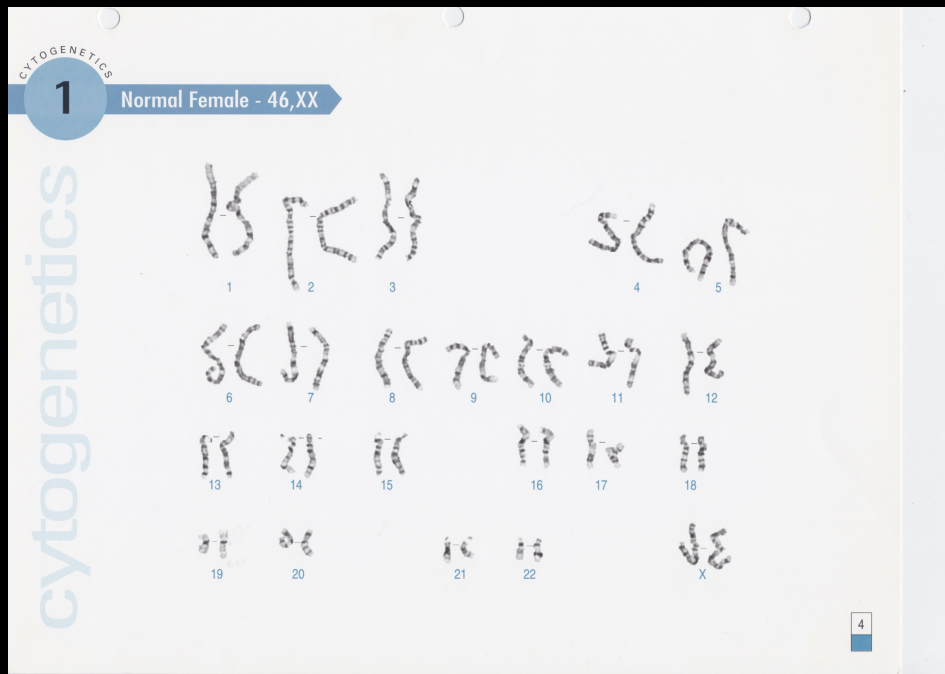 CYTOGENETICS
1
Normal Female - 46,XX
cytogenetics
1 2 3 4 5
6 7 8 9 10 11 12
13 14 15 16 17 18
19 20 21 22 X
4